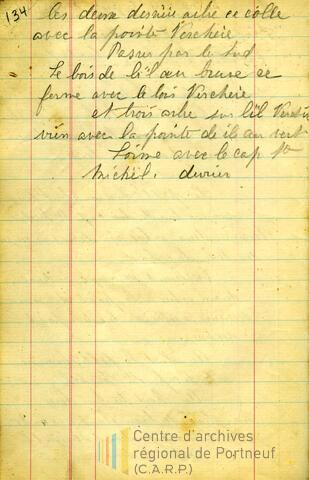 134
les deux dernière arbre ce colle
avec la pointe Verchère
Passer par le Sud
Le bois de l'il au brure ce
ferme avec le bois Verchère
et trois arbre sur l'il
avec la pointe de il au vert
avec le cap St
Michel.
Centre d'archives
régional de Portneuf
(C.A.R.P.)